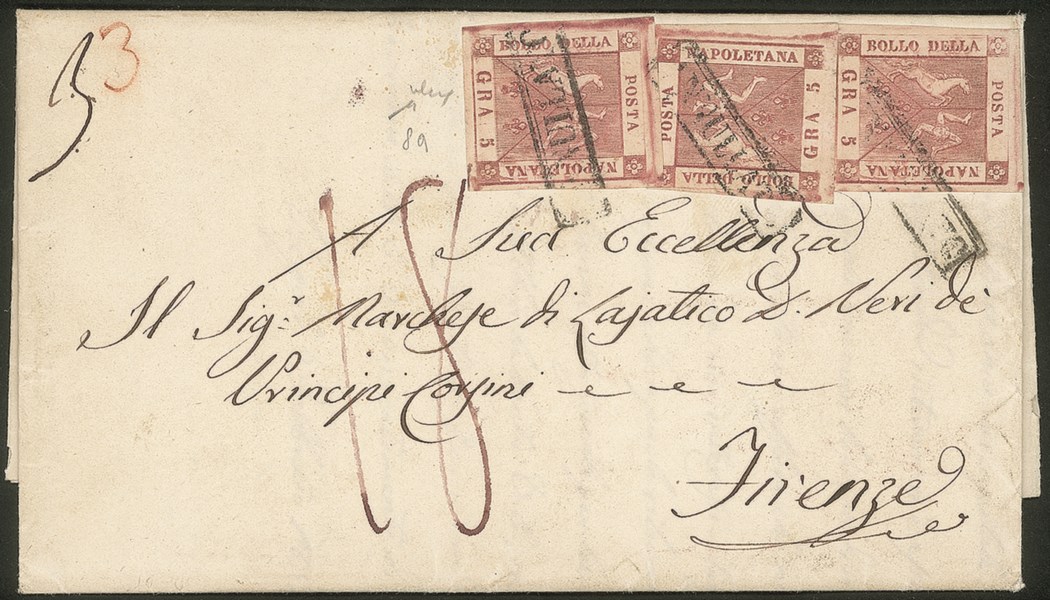 3
3
8a
BOLLO DELLA
POSTA
NAPOLETANA
GRA 5
NAPOLETANA
GRA 5
BOLLO DELLA
POSTA
BOLLO DELLA
POSTA
NAPOLETANA
GRA 5
ANNULLATO
ANNULLATO
18
A Sua Eccellenza
Il Sig.r Marchese di Lajatico D. Neri de'
Principi Corsini
Firenze